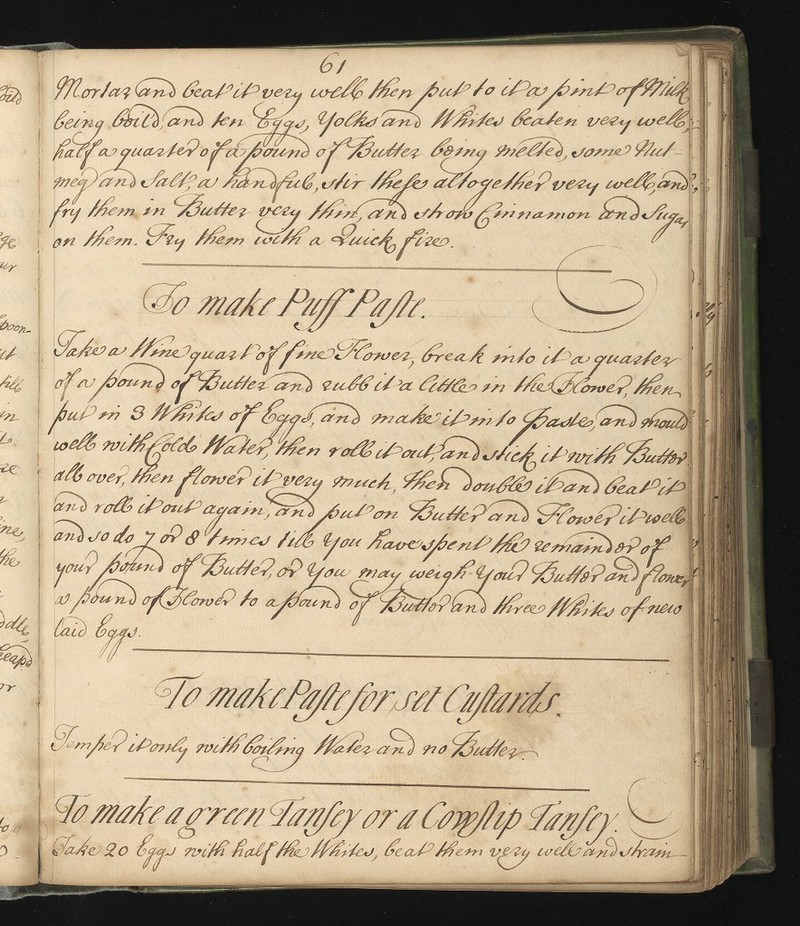 61
Mortar and beat it very well then put to it a pint of Milk
being boild and ten Eggs, Yolks and Whites beaten very well,
half a quarter of a pound of Butter being melted, some Nut-
meg and Salt, a handful, stir these altogether very well, and
fry them in Butter very thin, and strow Cinnamon and Sugar
on them. Fry them with a Quick fire.
To make Puff Paste.
Take a Wine quart of fine Flower, break into it a quarter
of a pound of Butter and rubb it a little in the Flower, then
put in 3 Whites of Eggs, and make it into Paste, and mould
well with Cold Water, then roll it out, and stick it with Butter
all over, then flower it very much, then double it and beat it
and roll it out again, and put on Butter and Flower it well
and so do 7 or 8 times till you have spent the remainder of
your pound of Butter, or you may weigh your Butter and flower
a pound of Flower to a pound of Butter and three Whites of new
laid Eggs.
To make Paste for set Custards.
Temper it only with boiling Water and no Butter.
To make a green Tansey or a Cowslip Tansey.
Take 20 Eggs with half the Whites, beat them very well and strain